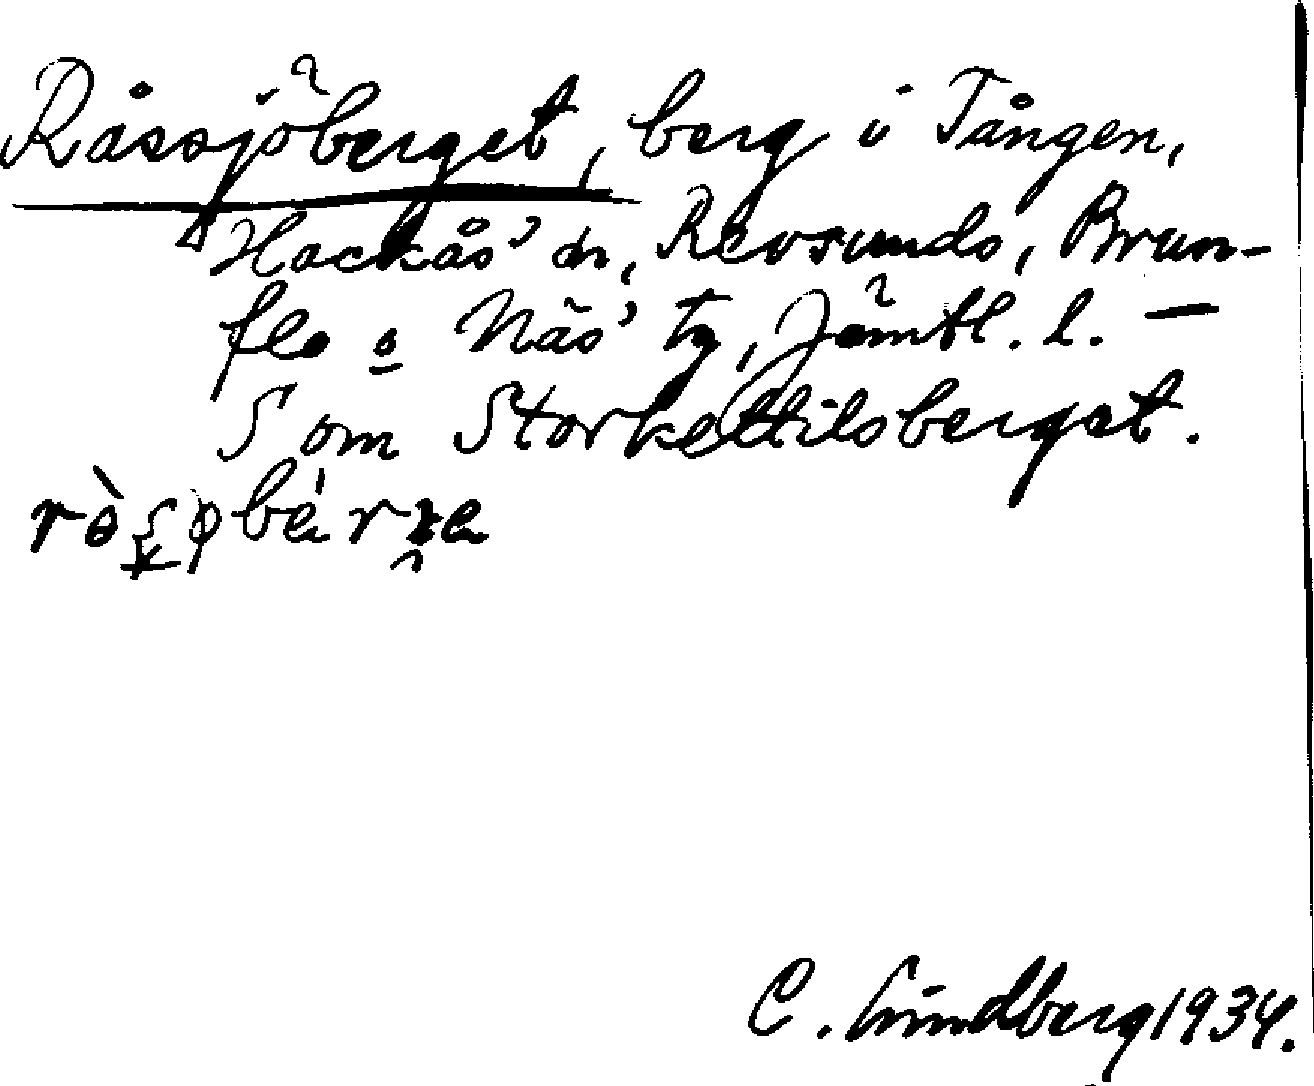 Råssjöberget, berg i Tången,
Hackås' sn, Revsunds, Brun-
flo o Näs' tg, Jämtl. l. —
S om Storkettilsberget.
C. Lindberg 1934.